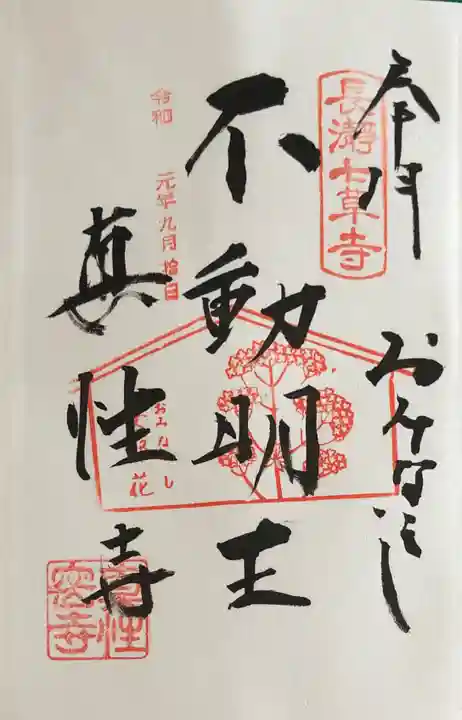 奉拝
長瀞七草寺
おみなえし
不動明王
令和 元年九月拾日
真性寺
おみなえし
女郎花
真性
密寺